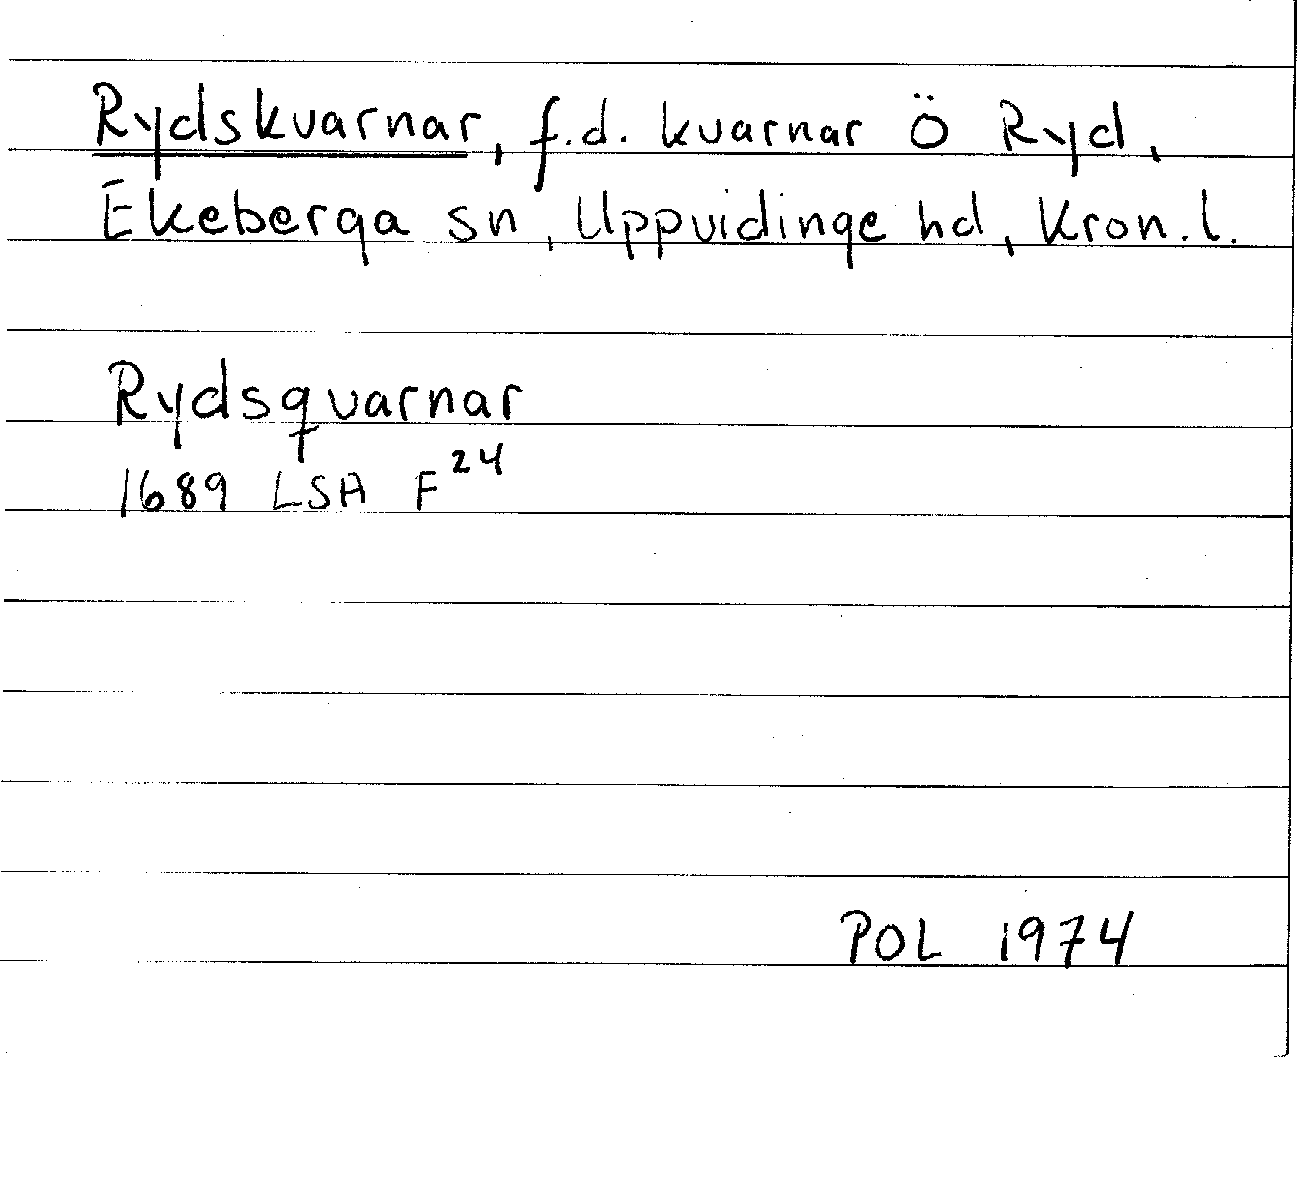 Rydskvarnar, f.d. kvarnar Ö Ryd,
Ekeberga sn, Uppvidinge hd, Kron.l.
Rydsquarnar
1689 LSA F²⁴
POL 1974